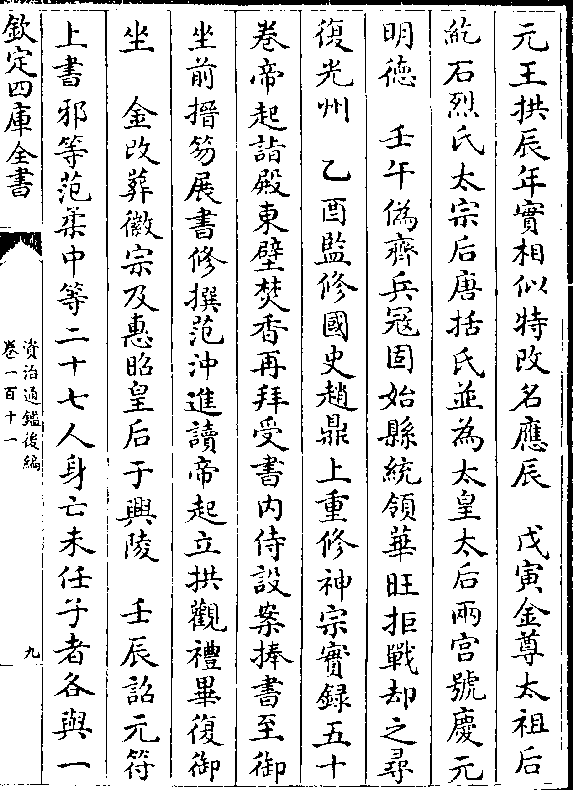 元王拱辰年實相似特改名應辰　戊寅金尊太祖后
紇石烈氏太宗后唐括氏並為太皇太后兩宮號慶元
明德　壬午偽齊兵寇固始縣統領華旺拒戰却之尋
復光州　乙酉監修國史趙鼎上重修神宗實録五十
卷帝起詣殿東壁焚香再拜受書内侍設案捧書至御
坐前搢笏展書修撰范沖進讀帝起立拱觀禮畢復御
坐　金改葬徽宗及惠昭皇后于興陵　壬辰詔元符
上書邪等范柔中等二十七人身亡未任子者各與一
欽定四庫全書
資治通鑑後編
卷一百十一
九